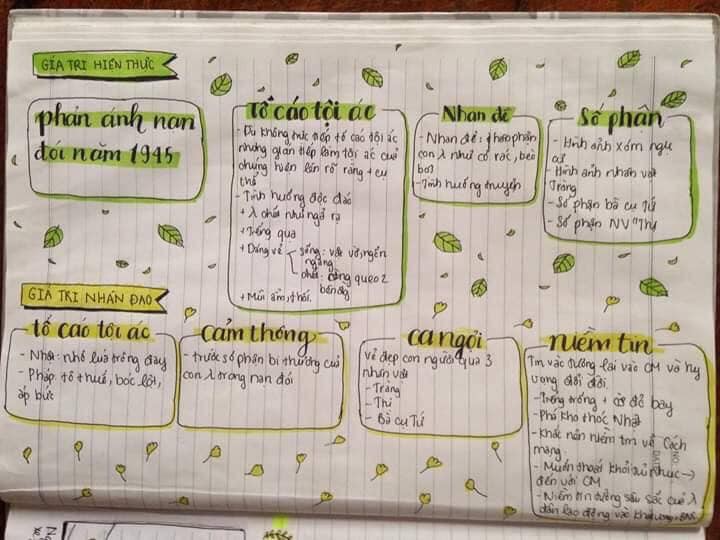 GIÁ TRỊ HIỆN THỰC
phản ánh nạn
đói năm 1945
Tố cáo tội ác
- Dù không trực tiếp tố cáo tội ác
nhưng gián tiếp làm tội ác của
chúng hiện lên rõ ràng + cụ
thể
- Tình huống độc đáo
+ λ chết như ngả rạ
+ Tiếng quạ
+ Dáng vẻ
sống: vật vờ, ngổn
ngang
chết: còng queo 2
bên đg
+ Mùi ẩm, thối.
Nhan đề
- Nhan đề: thân phận
con λ như cỏ rác, bèo
bọt
- Tình huống truyện
Số phận
- Hình ảnh xóm ngụ
cư
- Hình ảnh nhân vật
Tràng
- Số phận bà cụ Tứ
- Số phận NV "Thị
GIÁ TRỊ NHÂN ĐẠO
tố cáo tội ác
- Nhật: nhổ lúa trồng đay
- Pháp: tô thuế, bóc lột,
áp bức
cảm thông
- trước số phận bi thương của
con λ trong nạn đói
ca ngợi
vẻ đẹp con người qua 3
nhân vật
- Tràng
- Thị
- Bà cụ Tứ
niềm tin
Tin vào tương lai vào CM và hy
vọng đổi đời.
- Tiếng trống + cờ đỏ bay
- Phá kho thóc Nhật
- Khắc hẳn niềm tin về Cách
mạng
- Muốn thoát khỏi tủi nhục →
đến với CM
- Niềm tin tưởng sâu sắc của λ
dân lao động vào